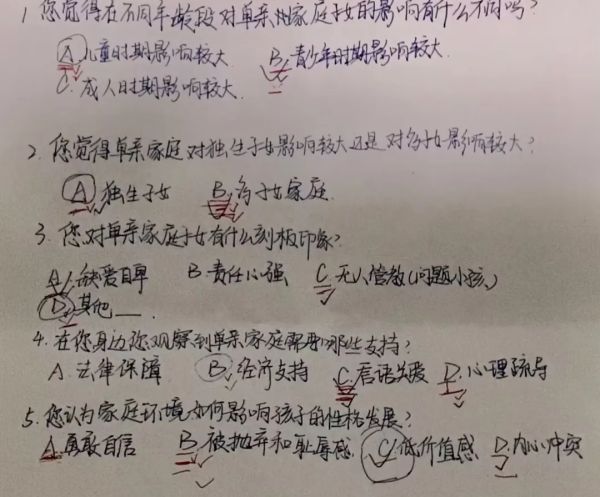 1 您觉得在不同年龄段对单亲家庭子女的影响有什么不同吗?
A 儿童时期影响较大 B. 青少年时期影响较大
C. 成人时期影响较大
2. 您觉得单亲家庭对独生子女影响较大还是对多子女影响较大?
A 独生子女 B. 多子女家庭
3. 您对单亲家庭子女有什么刻板印象?
A. 缺爱自卑 B 责任心强 C. 无人管教(问题小孩)
D. 其他__.
4. 在您身边您观察到单亲家庭需要哪些支持?
A. 法律保障 B. 经济支持 C. 言语关爱 D. 心理疏导
5. 您认为家庭环境如何影响孩子的性格发展?
A. 勇敢自信 B. 被抛弃和耻辱感 C. 低价值感 D. 内心冲突